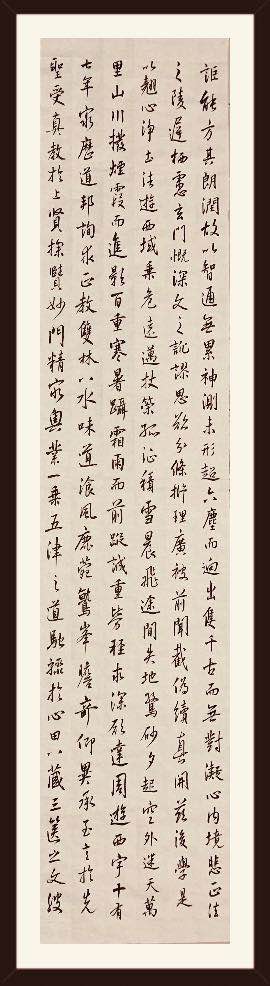 詎能方其朗潤故以智通無累神測未形超六塵而迥出隻千古而無對凝心內境悲正法
之陵遲栖慮玄門慨深文之訛謬思欲分條析理廣彼前聞截偽續真開茲後學是
以翹心淨土法遊西域乘危遠邁杖策孤征積雪晨飛途間失地驚砂夕起空外迷天萬
里山川撥煙霞而進影百重寒暑躡霜雨而前蹤誠重勞輕求深願達周遊西宇十有
七年窮歷道邦詢求正教雙林八水味道飡風鹿菀鷲峯瞻奇仰異承至言於先
聖受真教於上賢探賾妙門精窮奧業一乘五律之道馳驟於心田八藏三篋之文波